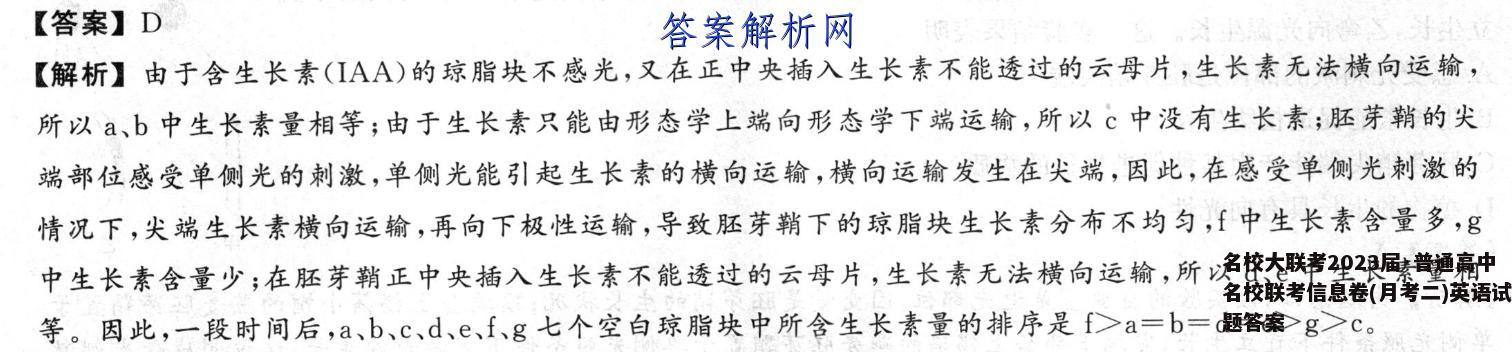 【答案】D
答案解析网
【解析】由于含生长素(IAA)的琼脂块不感光,又在正中央插入生长素不能透过的云母片,生长素无法横向运输,
所以a、b中生长素量相等;由于生长素只能由形态学上端向形态学下端运输,所以c中没有生长素;胚芽鞘的尖
端部位感受单侧光的刺激,单侧光能引起生长素的横向运输,横向运输发生在尖端,因此,在感受单侧光刺激的
情况下,尖端生长素横向运输,再向下极性运输,导致胚芽鞘下的琼脂块生长素分布不均匀,f中生长素含量多,g
中生长素含量少;在胚芽鞘正中央插入生长素不能透过的云母片,生长素无法横向运输,所以
等。因此,一段时间后,a、b、c、d、e、f、g七个空白琼脂块中所含生长素量的排序是f>a=b= >g>c。
名校大联考2023届·普通高中
名校联考信息卷(月考二)英语试
题答案